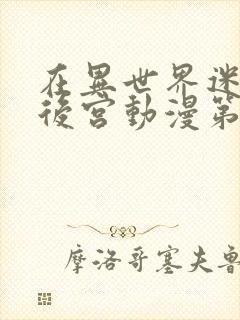 在異世界迷
後宮動漫第
摩洛哥塞夫魯